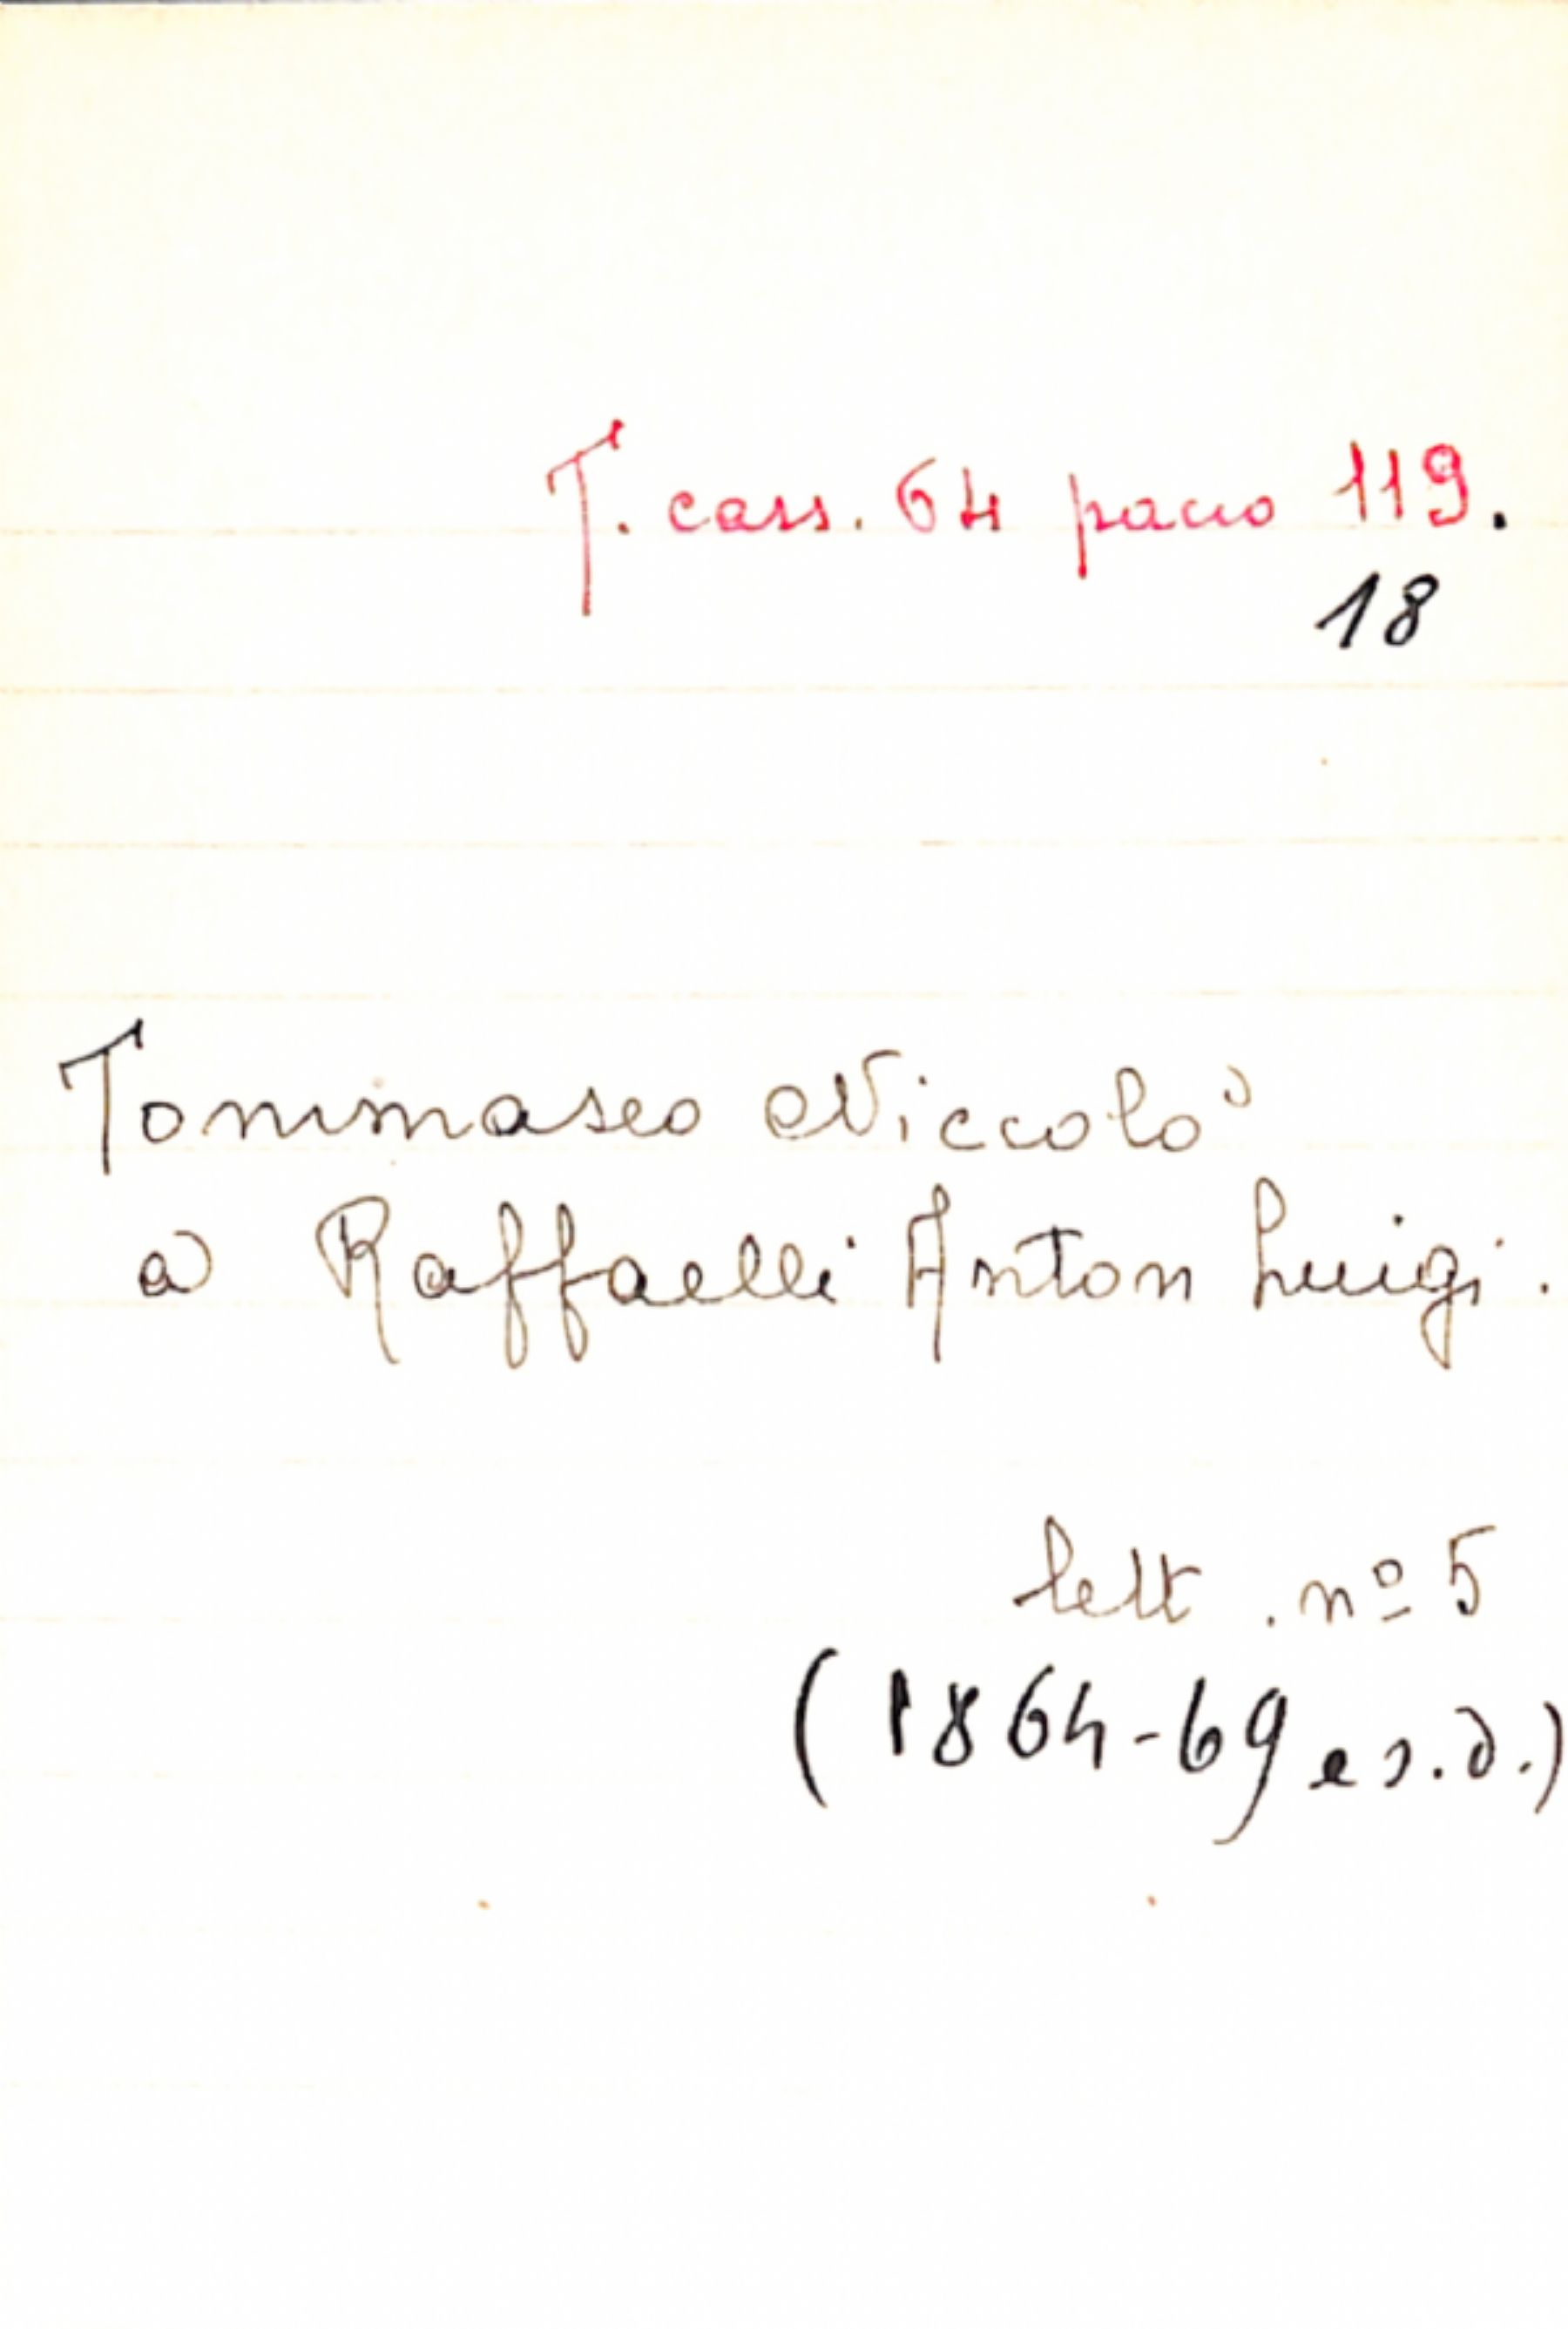 T. cass. 64 pacco 119.
18
Tommaseo Niccolò
a Raffaelli Anton Luigi.
lett. nº 5
(1864-69 e s.d.)